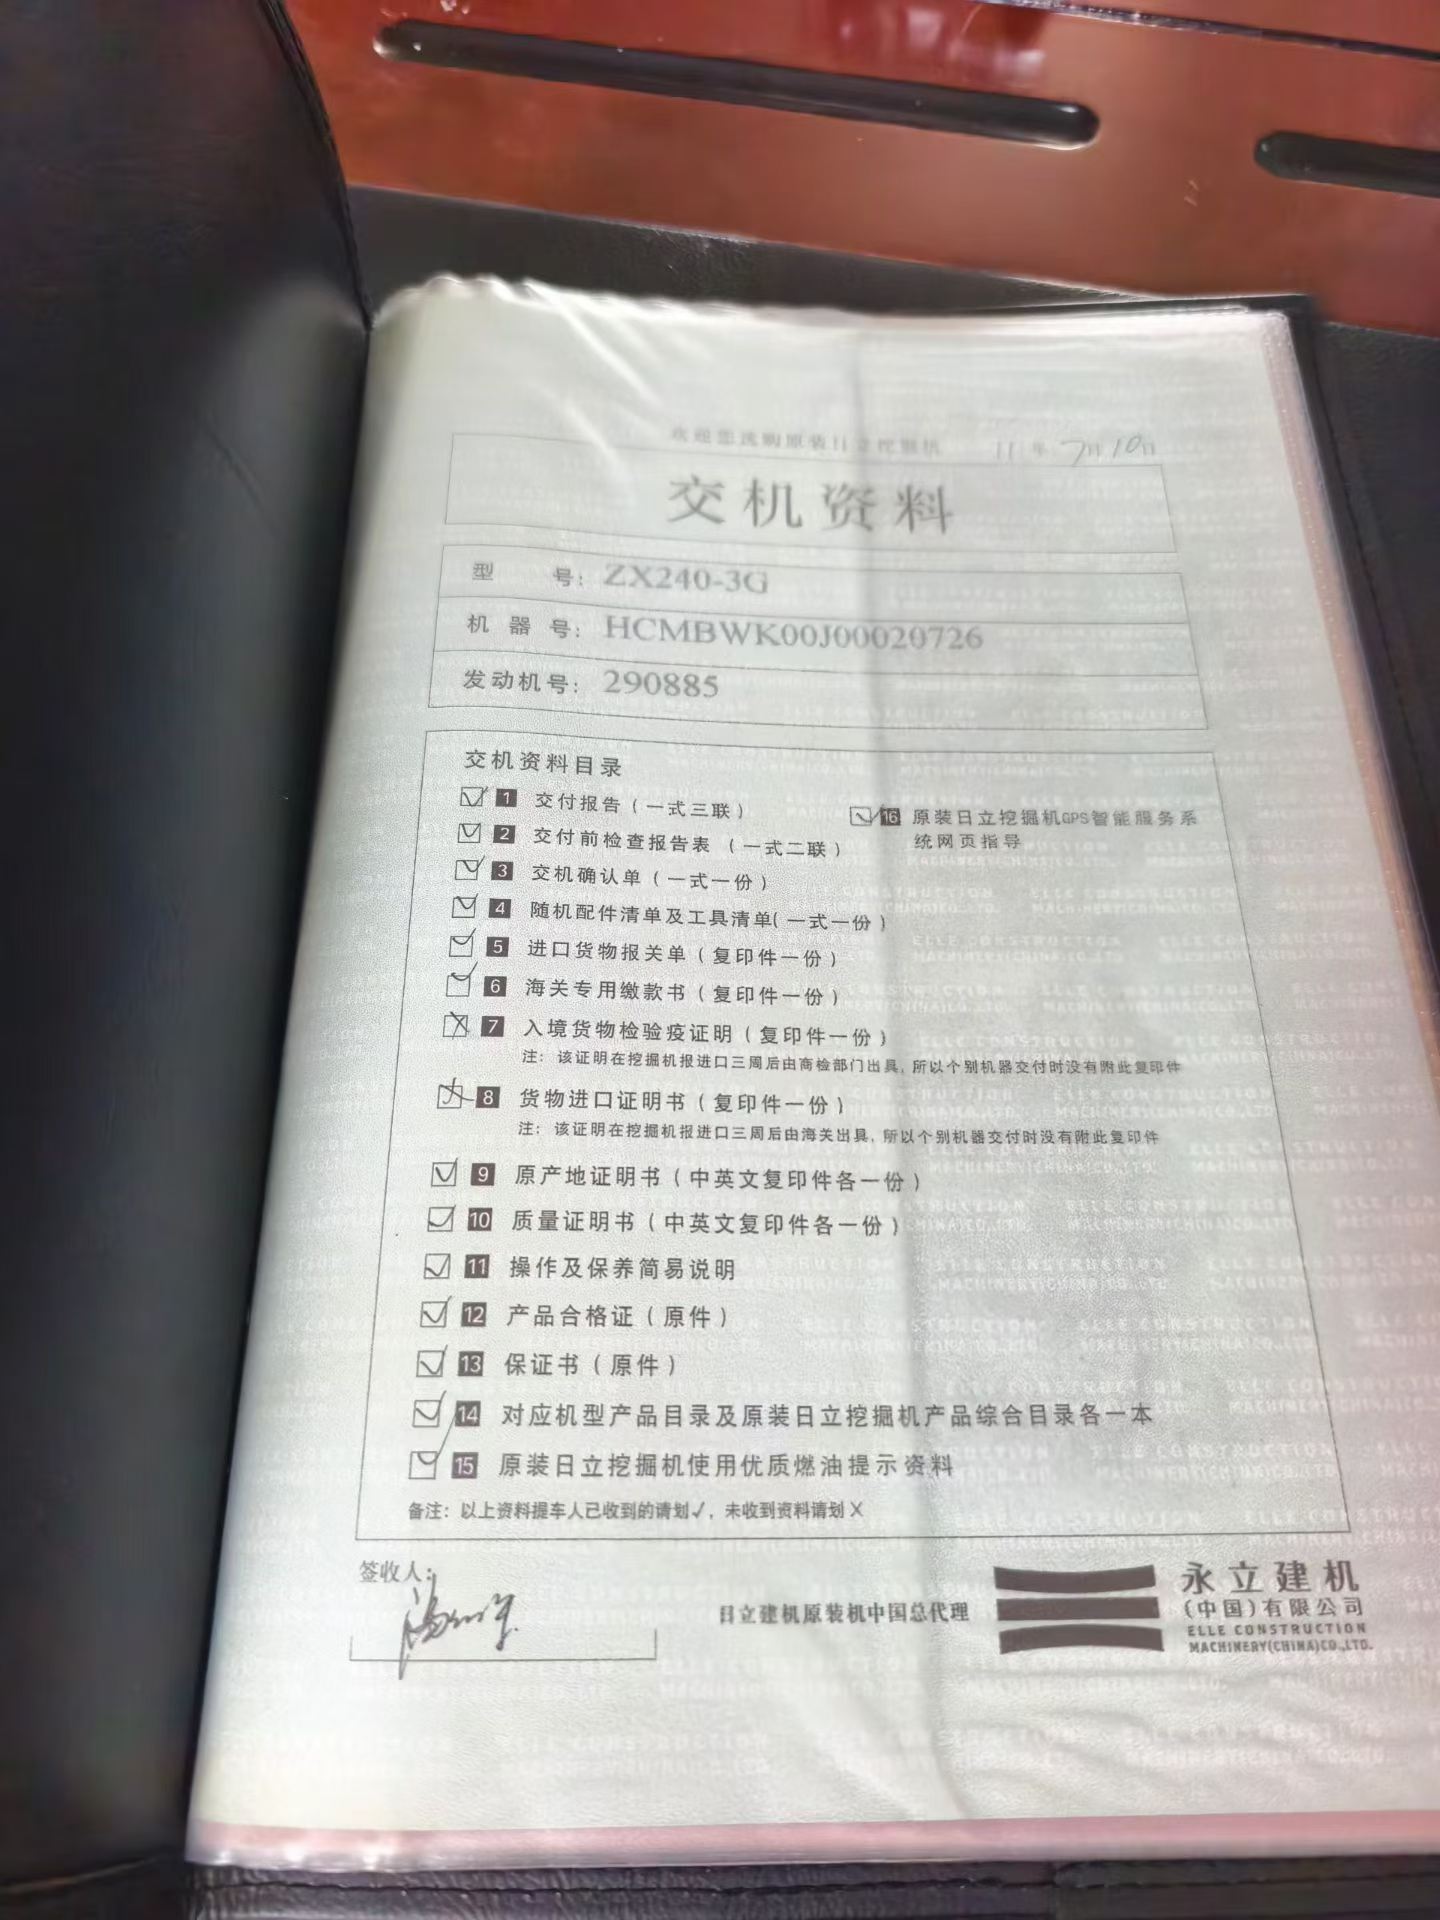 欢迎您选购原装日立挖掘机 11年7月10日
交机资料
型 号: ZX240-3G
机 器 号: HCMBWK00J00020726
发动机号: 290885
交机资料目录
1 交付报告(一式三联)
2 交付前检查报告表(一式二联)
3 交机确认单(一式一份)
4 随机配件清单及工具清单(一式一份)
5 进口货物报关单(复印件一份)
6 海关专用缴款书(复印件一份)
7 入境货物检验疫证明(复印件一份)
注: 该证明在挖掘机报进口三周后由商检部门出具, 所以个别机器交付时没有附此复印件
8 货物进口证明书(复印件一份)
注: 该证明在挖掘机报进口三周后由海关出具, 所以个别机器交付时没有附此复印件
9 原产地证明书(中英文复印件各一份)
10 质量证明书(中英文复印件各一份)
11 操作及保养简易说明
12 产品合格证(原件)
13 保证书(原件)
14 对应机型产品目录及原装日立挖掘机产品综合目录各一本
15 原装日立挖掘机使用优质燃油提示资料
16 原装日立挖掘机GPS智能服务系
统网页指导
备注: 以上资料提车人已收到的请划√, 未收到资料请划X
签收人:
日立建机原装机中国总代理
永立建机
(中国)有限公司
ELLE CONSTRUCTION
MACHINERY(CHINA)CO.,LTD.